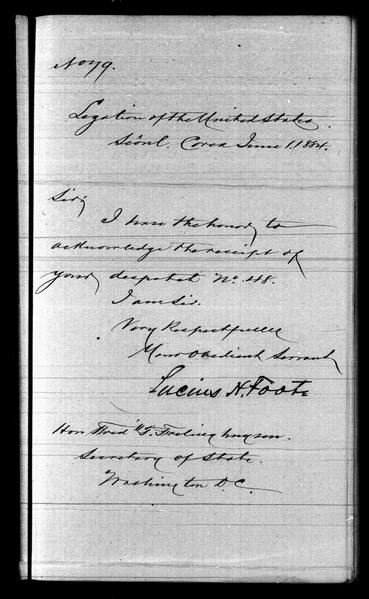 No 79.
Legation of the United States
Séoul. Corea June 1, 1884.
Sir;
I have the honor, to
acknowledge the receipt of
your, despatch No. 48.
I am Sir.
Very Respectfully
Your Obedient Servant,
Lucius H. Foote
Hon Fred'k T. Frelinghuysen.
Secretary of State.
Washington D.C.